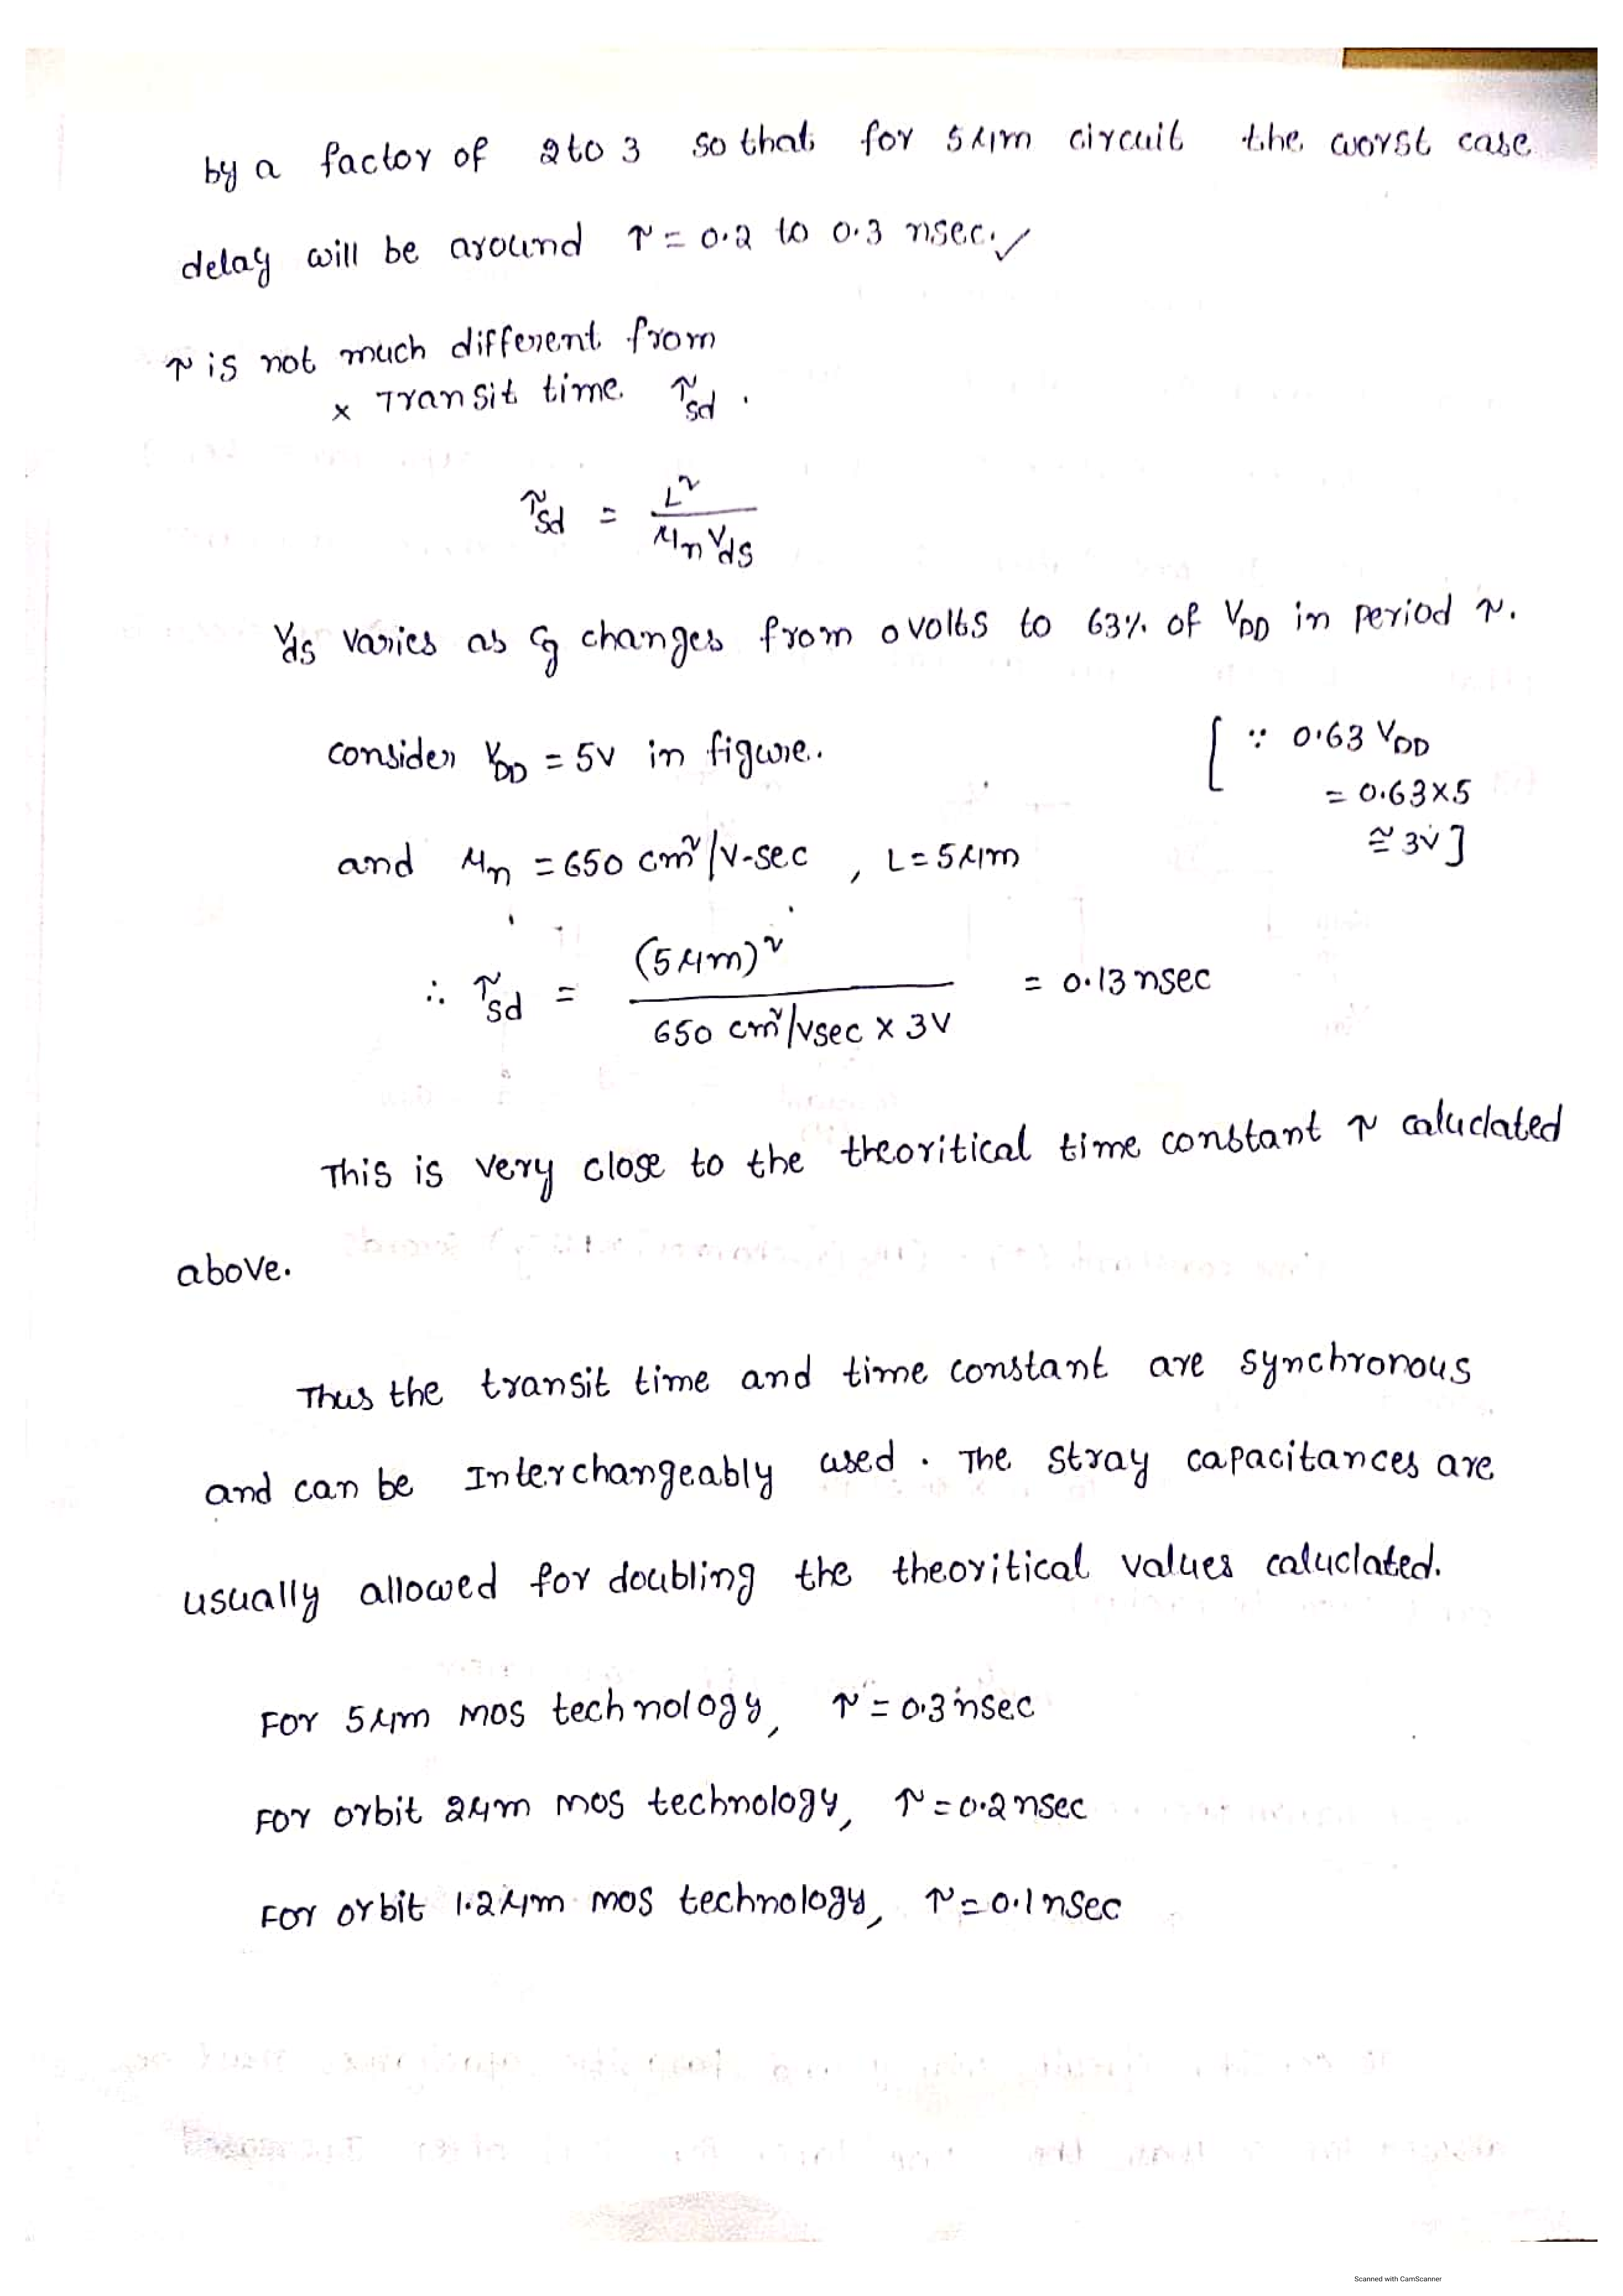 by a factor of 2 to 3 so that for 5 μm circuit the worst case
delay will be around τ = 0.2 to 0.3 nsec. ✓
τ is not much different from
x Transit time τsd .
τsd = L² / μn Vds
Vds varies as Cg changes from 0 volts to 63% of VDD in period τ.
consider VDD = 5V in figure.
[ ∵ 0.63 VDD
= 0.63×5
≅ 3V ]
and μn = 650 cm²/V-sec , L = 5 μm
∴ τsd = (5 μm)² / 650 cm²/Vsec × 3V = 0.13 nsec
This is very close to the theoritical time constant τ caluclated
above.
Thus the transit time and time constant are synchronous
and can be Interchangeably used . The stray capacitances are
usually allowed for doubling the theoritical values caluclated.
For 5 μm mos technology, τ = 0.3 nsec
For orbit 2 μm mos technology, τ = 0.2 nsec
For orbit 1.2 μm mos technology, τ = 0.1 nsec
Scanned with CamScanner